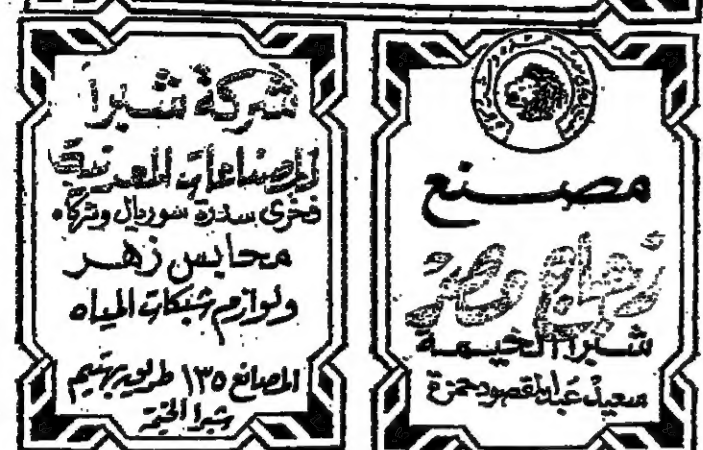 مصنع
زجاج مصر
شبرا الخيمة
سعيد عبد المقصود حمزة
شركة شبرا
للصناعات المعدنية
فخرى سدرة سوريال وشركاه
محابس زهر
ولوازم شبكات المياه
المصانع ١٣٥ طريق بهتيم
شبرا الخيمة